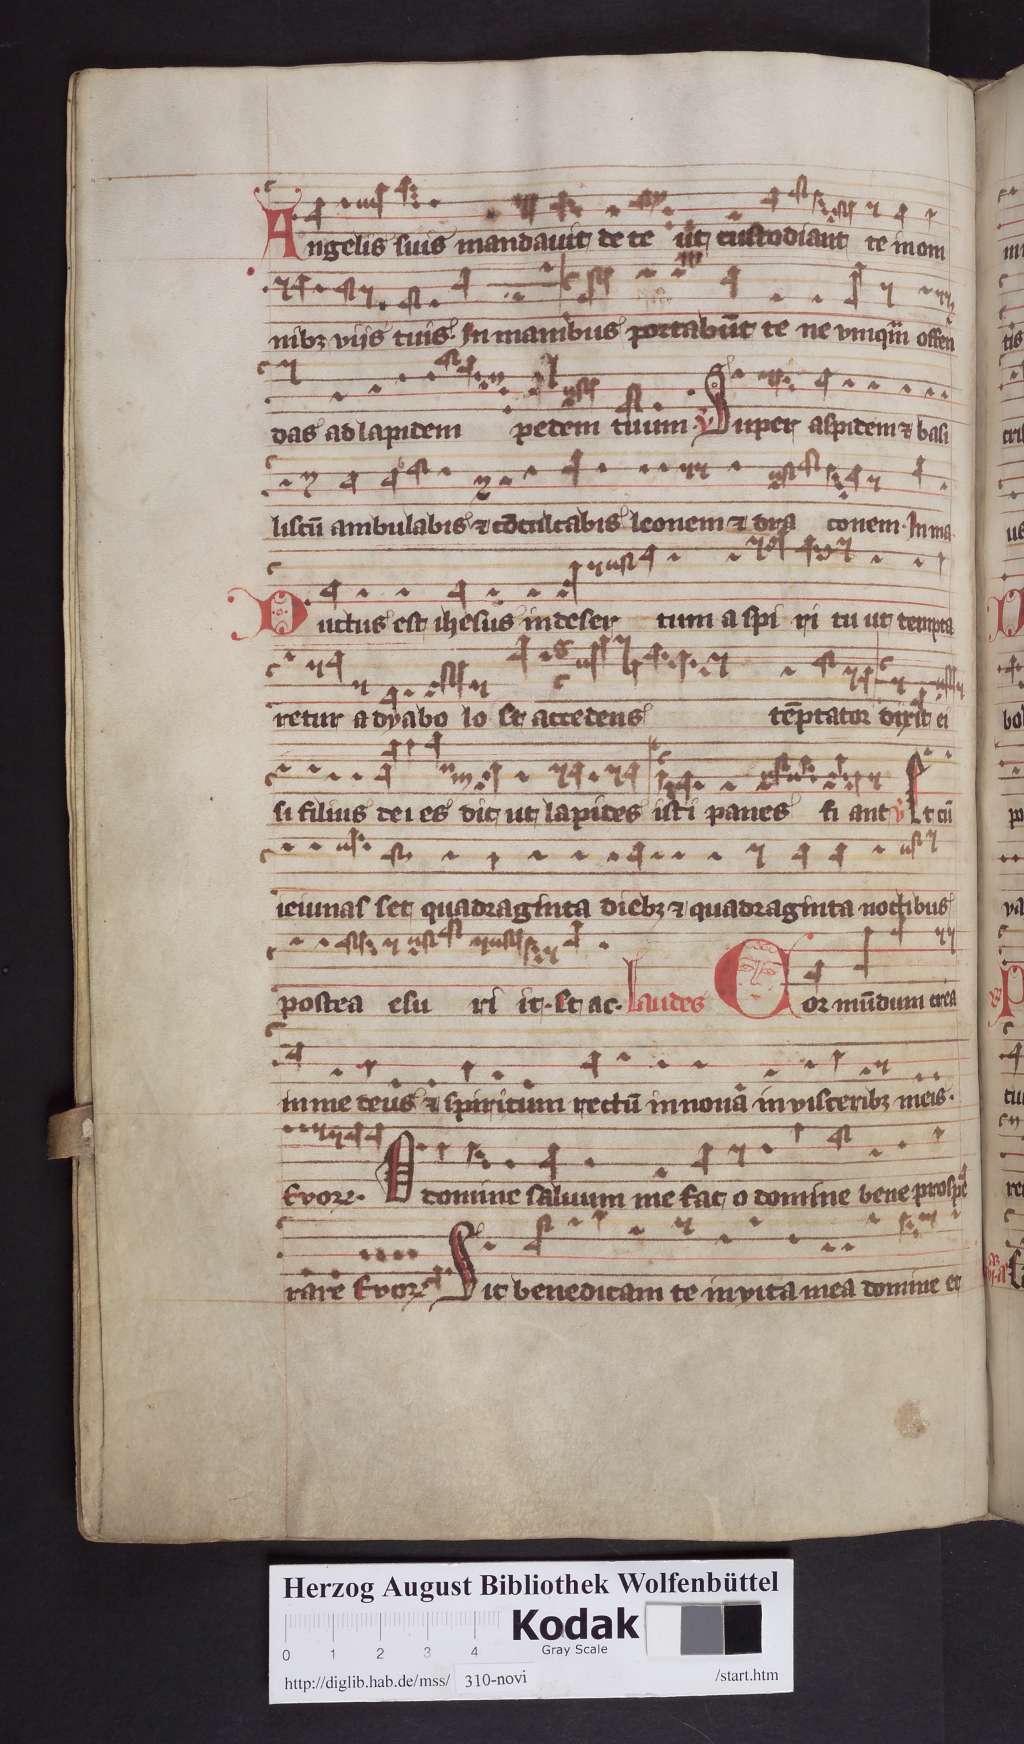 Angelis suis mandauit de te ut custodiant te in om
nibꝫ vijs tuis. In manibus portabūt te ne vmqm̄ offen
das ad lapidem pedem tuum. ℣ Super aspidem ⁊ basi
liscū ambulabis ⁊ cōculcabis leonem ⁊ dra conem. In ma.
Ductus est ihesus in deser tum a spi ri tu ut tempta
retur a dyabo lo Et accedens tēptator dixit ei
si filius dei es dic ut lapides isti panes fi ant ℣ Et cū
ieiunas set quadraginta diebꝫ ⁊ quadraginta noctibus
postea esu ri it. Et ac. Laudes Cor mūdum crea
in me deus ⁊ spiritum rectū innoua in visceribꝫ meis.
Evoꝛe. O domine saluum me fac o domine bene prospe
rare Evoꝛe Sic benedicam te in vita mea domine et
Herzog August Bibliothek Wolfenbüttel
Kodak
Gray Scale
0 1 2 3 4
http://diglib.hab.de/mss/ 310-novi /start.htm